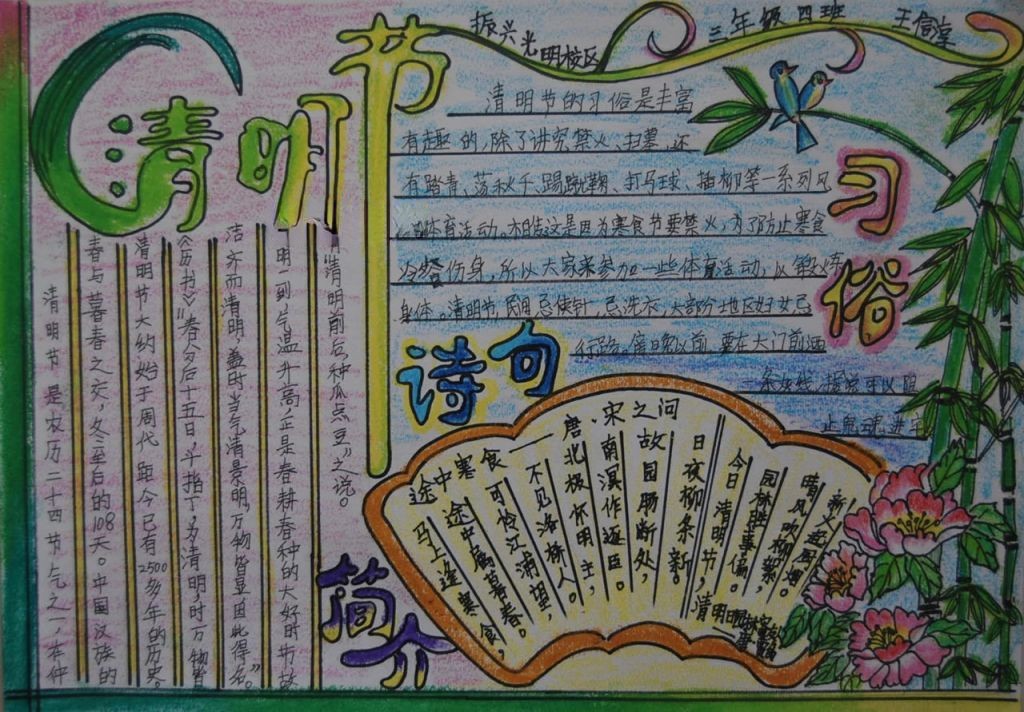 清明节
振兴光明校区
三年级四班
王信
清明节的习俗是丰富
有趣的,除了讲究禁火、扫墓,还
有踏青、荡秋千、踢蹴鞠、打马球、插柳等一系列风
体育活动。相传这是因为寒食节要禁火,为了防止寒食
冷餐伤身,所以大家来参加一些体育活动,以锻炼
身体。清明节,民间忌使针,忌洗衣,大部分地区妇女忌
行路。傍晚以前,要在大门前洒
一条灰线,据说可以阻
止鬼魂进宅
习俗
诗句
简介
清明节是农历二十四节气之一,在仲
春与暮春之交,冬至后的108天。中国汉族的
清明节大约始于周代距今已有2500多年的历史。
《历书》:“春分后十五日,斗指丁,为清明,时万物皆
洁齐而清明,盖时当气清景明,万物皆显因此得名。”
明一到,气温升高,正是春耕春种的大好时节故
“清明前后,种瓜点豆”之说。
途中寒食——唐.宋之问
马上逢寒食,
途中属暮春。
可怜江浦望,
不见洛桥人。
北极怀明主,
南溟作逐臣。
故园肠断处,
日夜柳条新。
清明
今日清明节,
园林胜事偏。
晴风吹柳絮,
新火起厨烟。